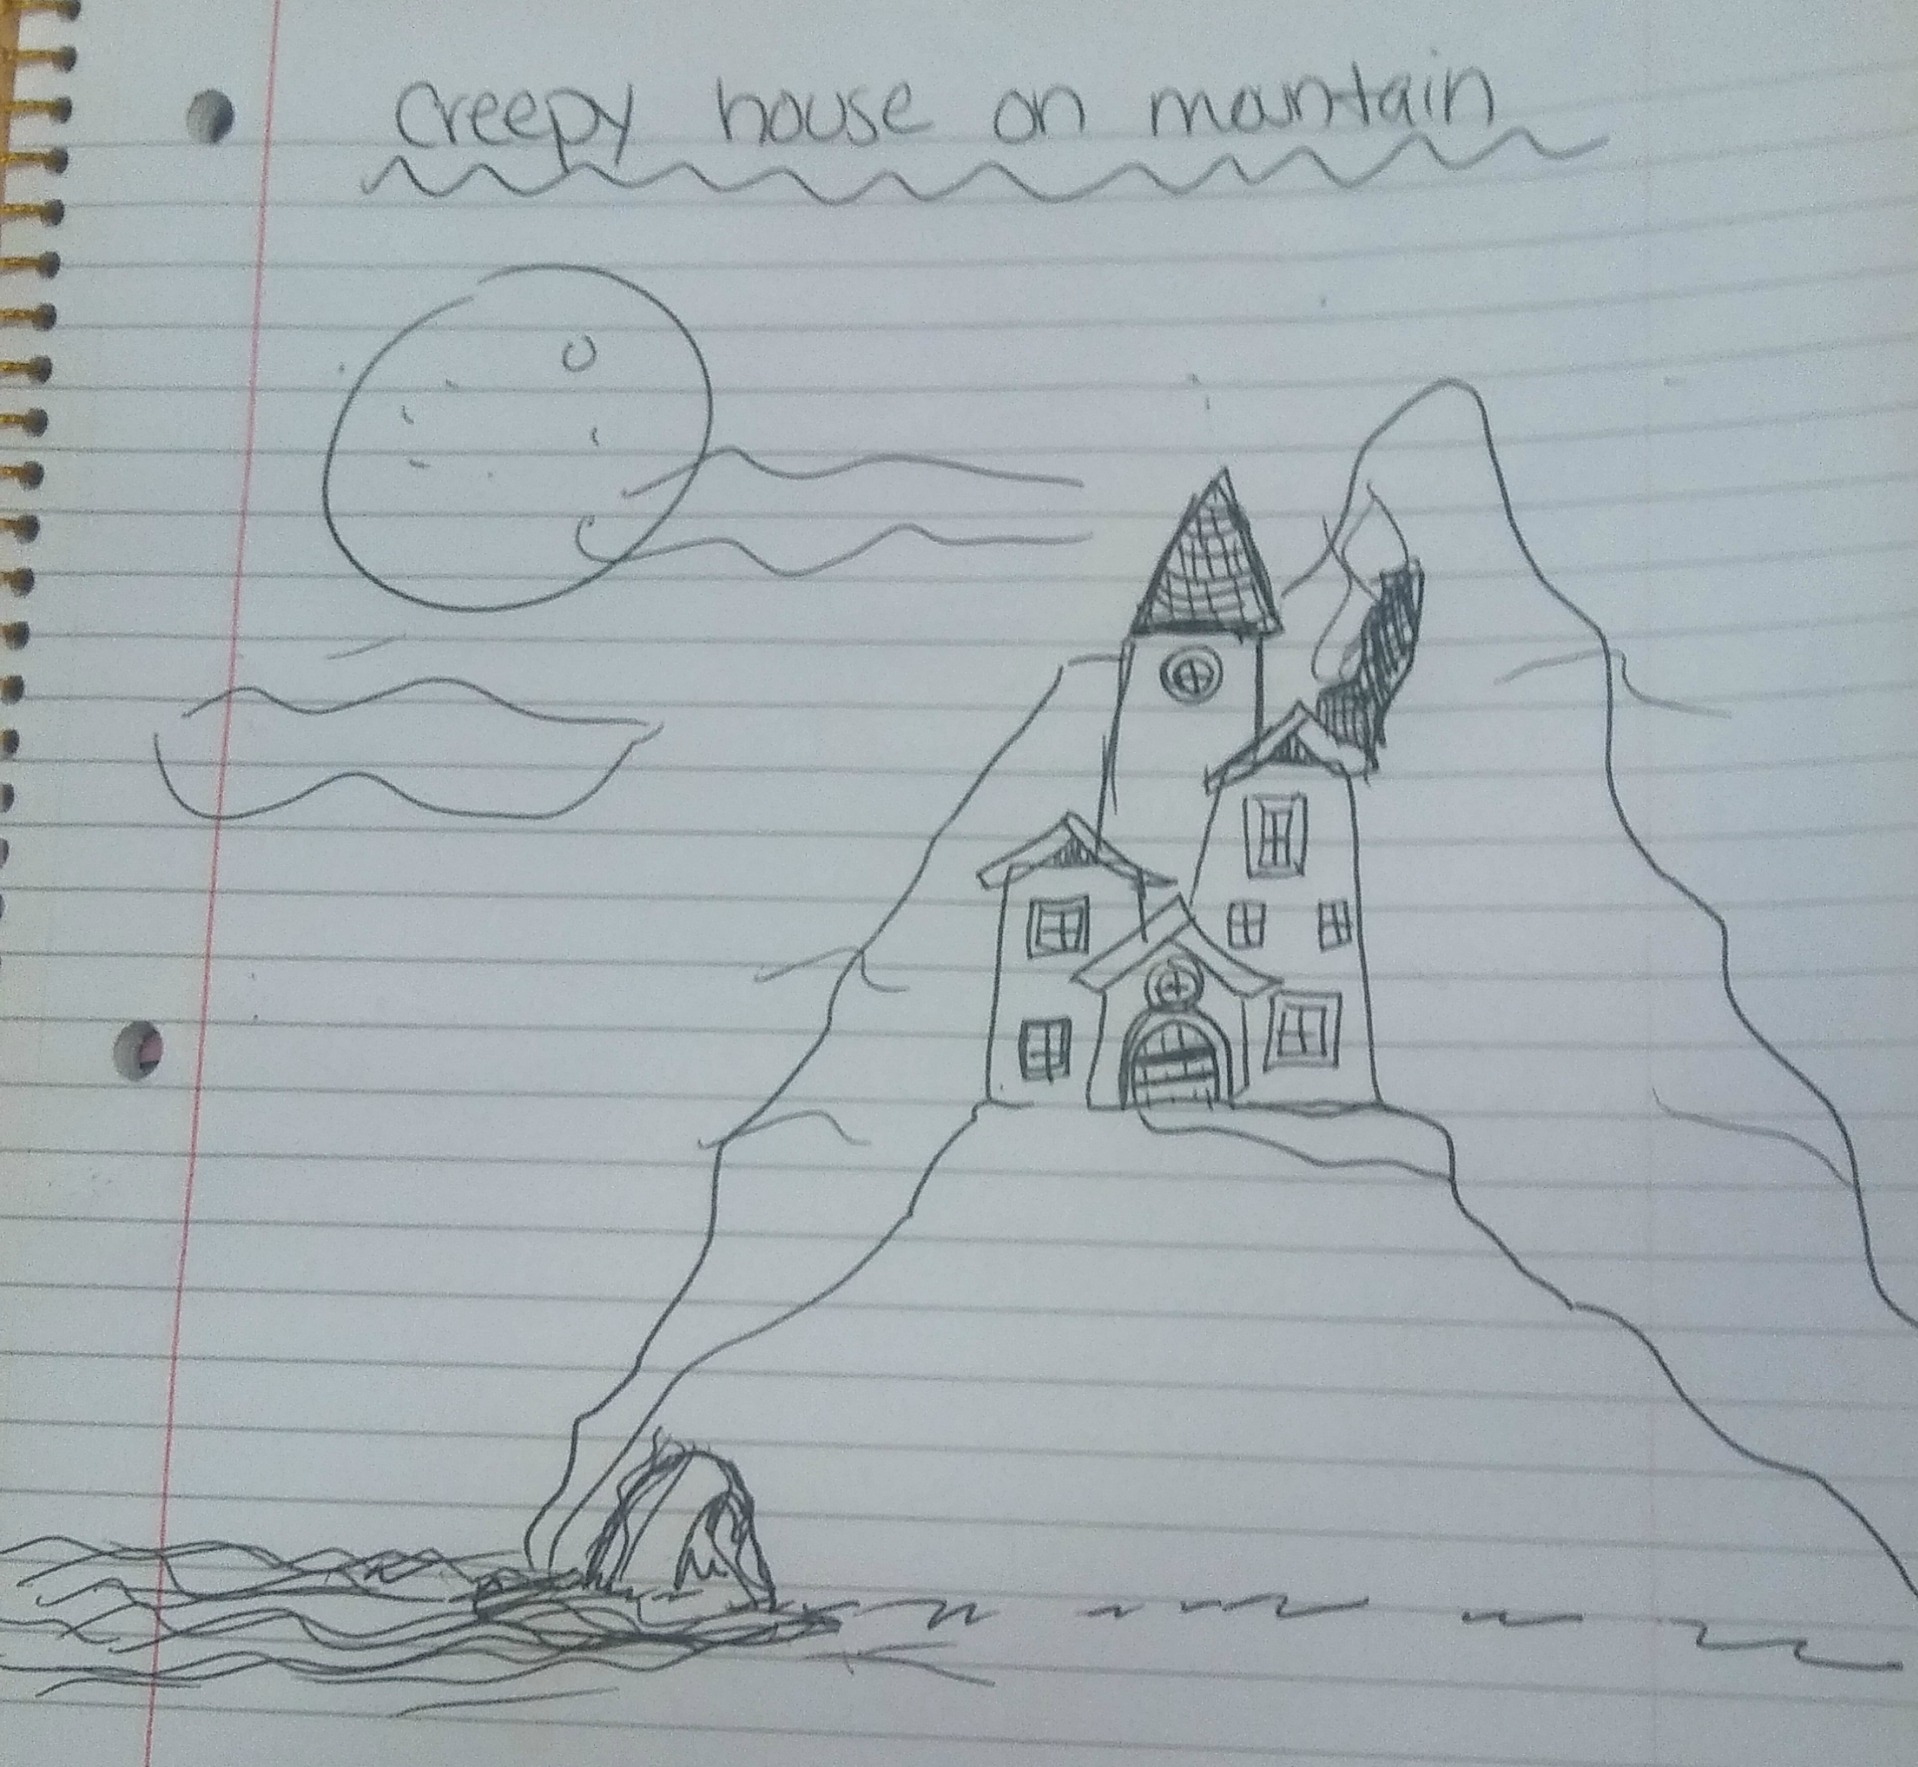 creepy house on mountain